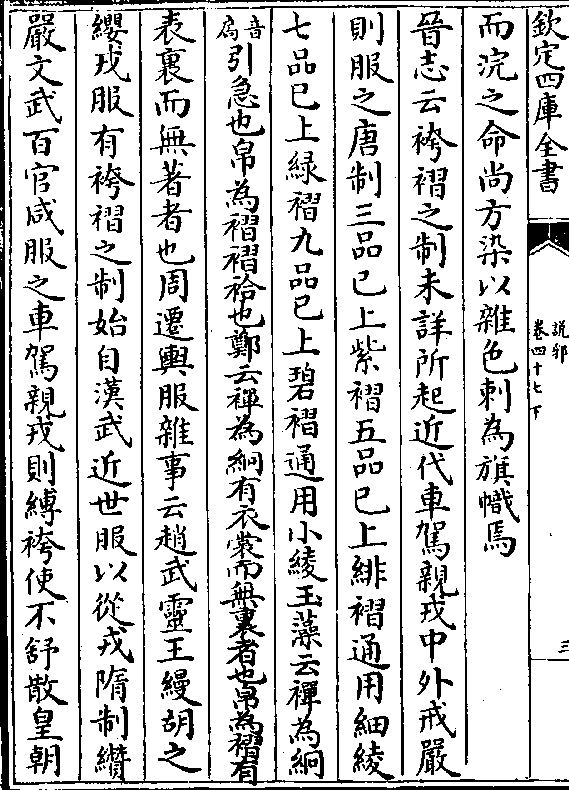 欽定四庫全書
說郛
卷四十七下
三
而浣之命尚方染以雜色刺為旗幟焉
晉志云袴褶之制未詳所起近代車駕親戎中外戒嚴
則服之唐制三品已上紫褶五品已上緋褶通用細綾
七品已上緑褶九品已上碧褶通用小綾玉藻云襌為絅
音扃引急也帛為褶褶袷也鄭云襌為絅有衣裳而無裏者也帛為褶有
表裏而無著者也周遷輿服雜事云趙武靈王縵胡之
纓戎服有袴褶之制始自漢武近世服以從戎隋制纘
嚴文武百官咸服之車駕親戎則縛袴使不舒散皇朝